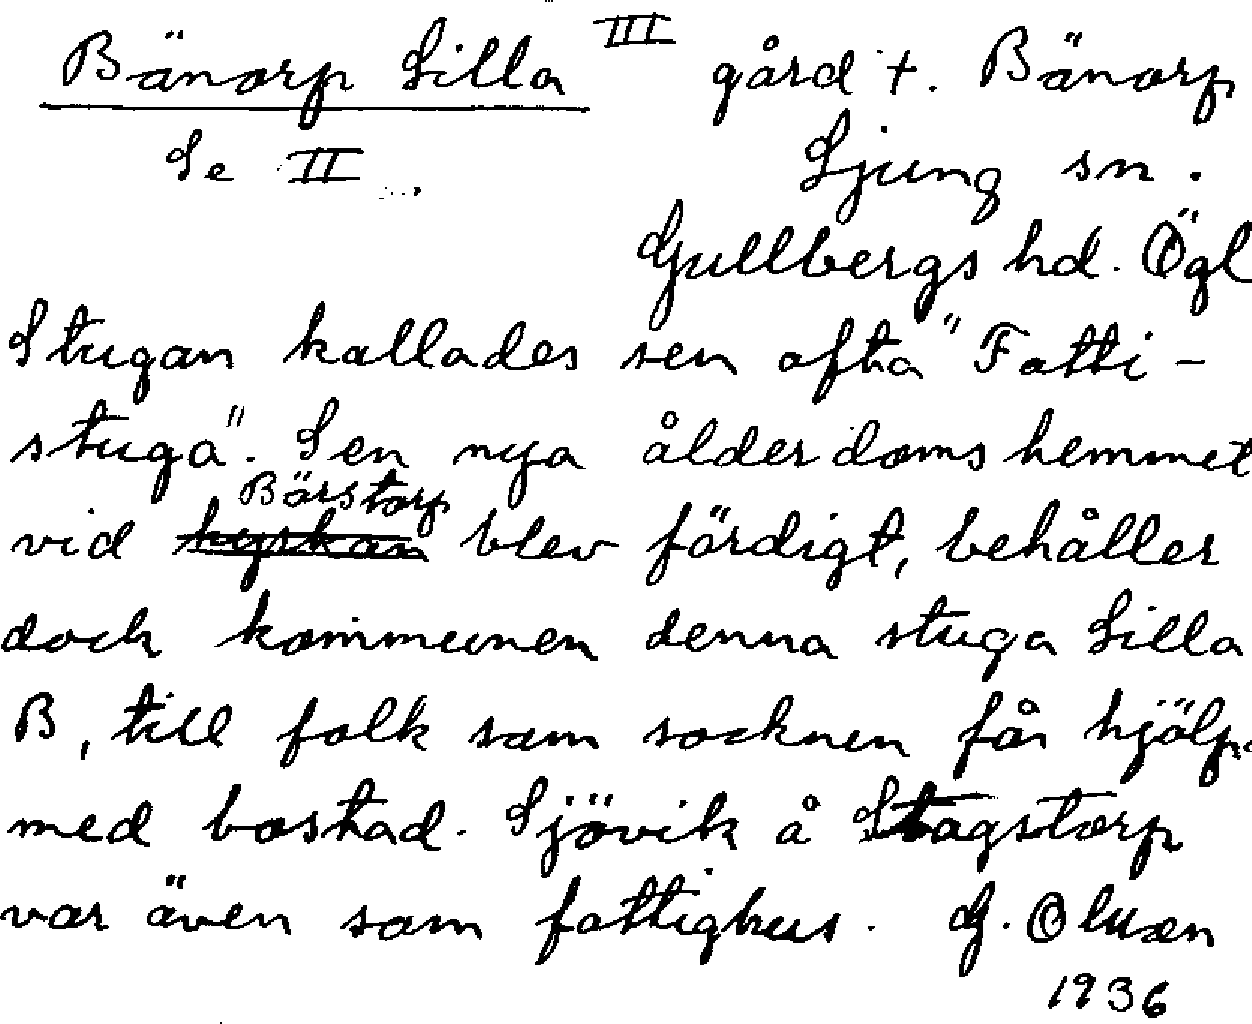 Bänorp Lilla III gård t. Bänorp
Se II
Ljung sn.
Gullbergs hd. Ögl
Stugan kallades sen ofta "Fatti-
stuga". Sen nya ålderdomshemmet
vid kyrkan Bärstorp blev färdigt, behåller
dock kommunen denna stuga Lilla
B, till folk som socknen får hjälp.
med bostad. Sjövik å Stagstorp
var även som fattighus. G. Olsson
1936